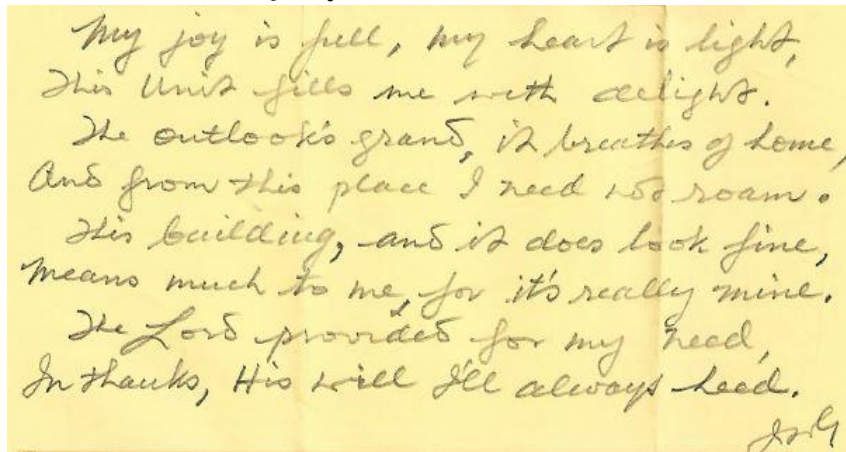 My joy is full, my heart is light,
This Unit fills me with delight.
The outlook's grand, it breathes of home,
And from this place I need not roam.
This building, and it does look fine,
Means much to me, for it's really mine.
The Lord provided for my need,
In thanks, His will I'll always heed.